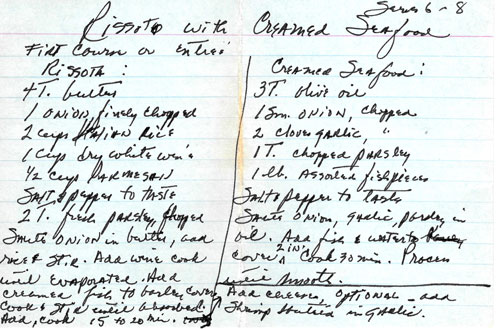 Serves 6-8
Rissoto with Creamed Seafood
First Course or Entree
Rissota:
4T. butter
1 onion, finely chopped
2 cups Italian Rice
1 Cup dry white wine
1/2 cup Parmesan
Salt & pepper to taste
2 T. fresh parsley, chopped
Saute onion in butter, add
rice & stir. Add wine cook
until evaporated. Add
creamed fish to barley, cover
Cook & stir until absorbed.
Add, cook 15 to 20 min.
Creamed Seafood:
3T. olive oil
1 sm. onion, chopped
2 cloves garlic, "
1 T. chopped parsley
1 lb. Assorted fish pieces
Salt & pepper to taste
Saute onion, garlic, parsley in
oil. Add fish & water to
cover 2 in. Cook 30 min. Process
until smooth.
Add cheese, optional - add
Shrimp sauteed in garlic.